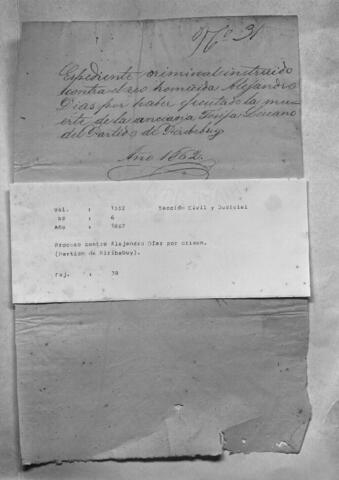 Nº 31
Espediente criminal instruido
contra el reo homicida Alejandro
Dias por haber ejecutado la mu-
erte de la anciana Lucano
del Partido de Piribebuy
Año 1862.
Vol. : 1552 Sección Civil y Judicial
Nº : 6
Año : 1862
Proceso contra Alejandro Díaz por crimen.
(Partido de Piribebuy).
Foj. : 38